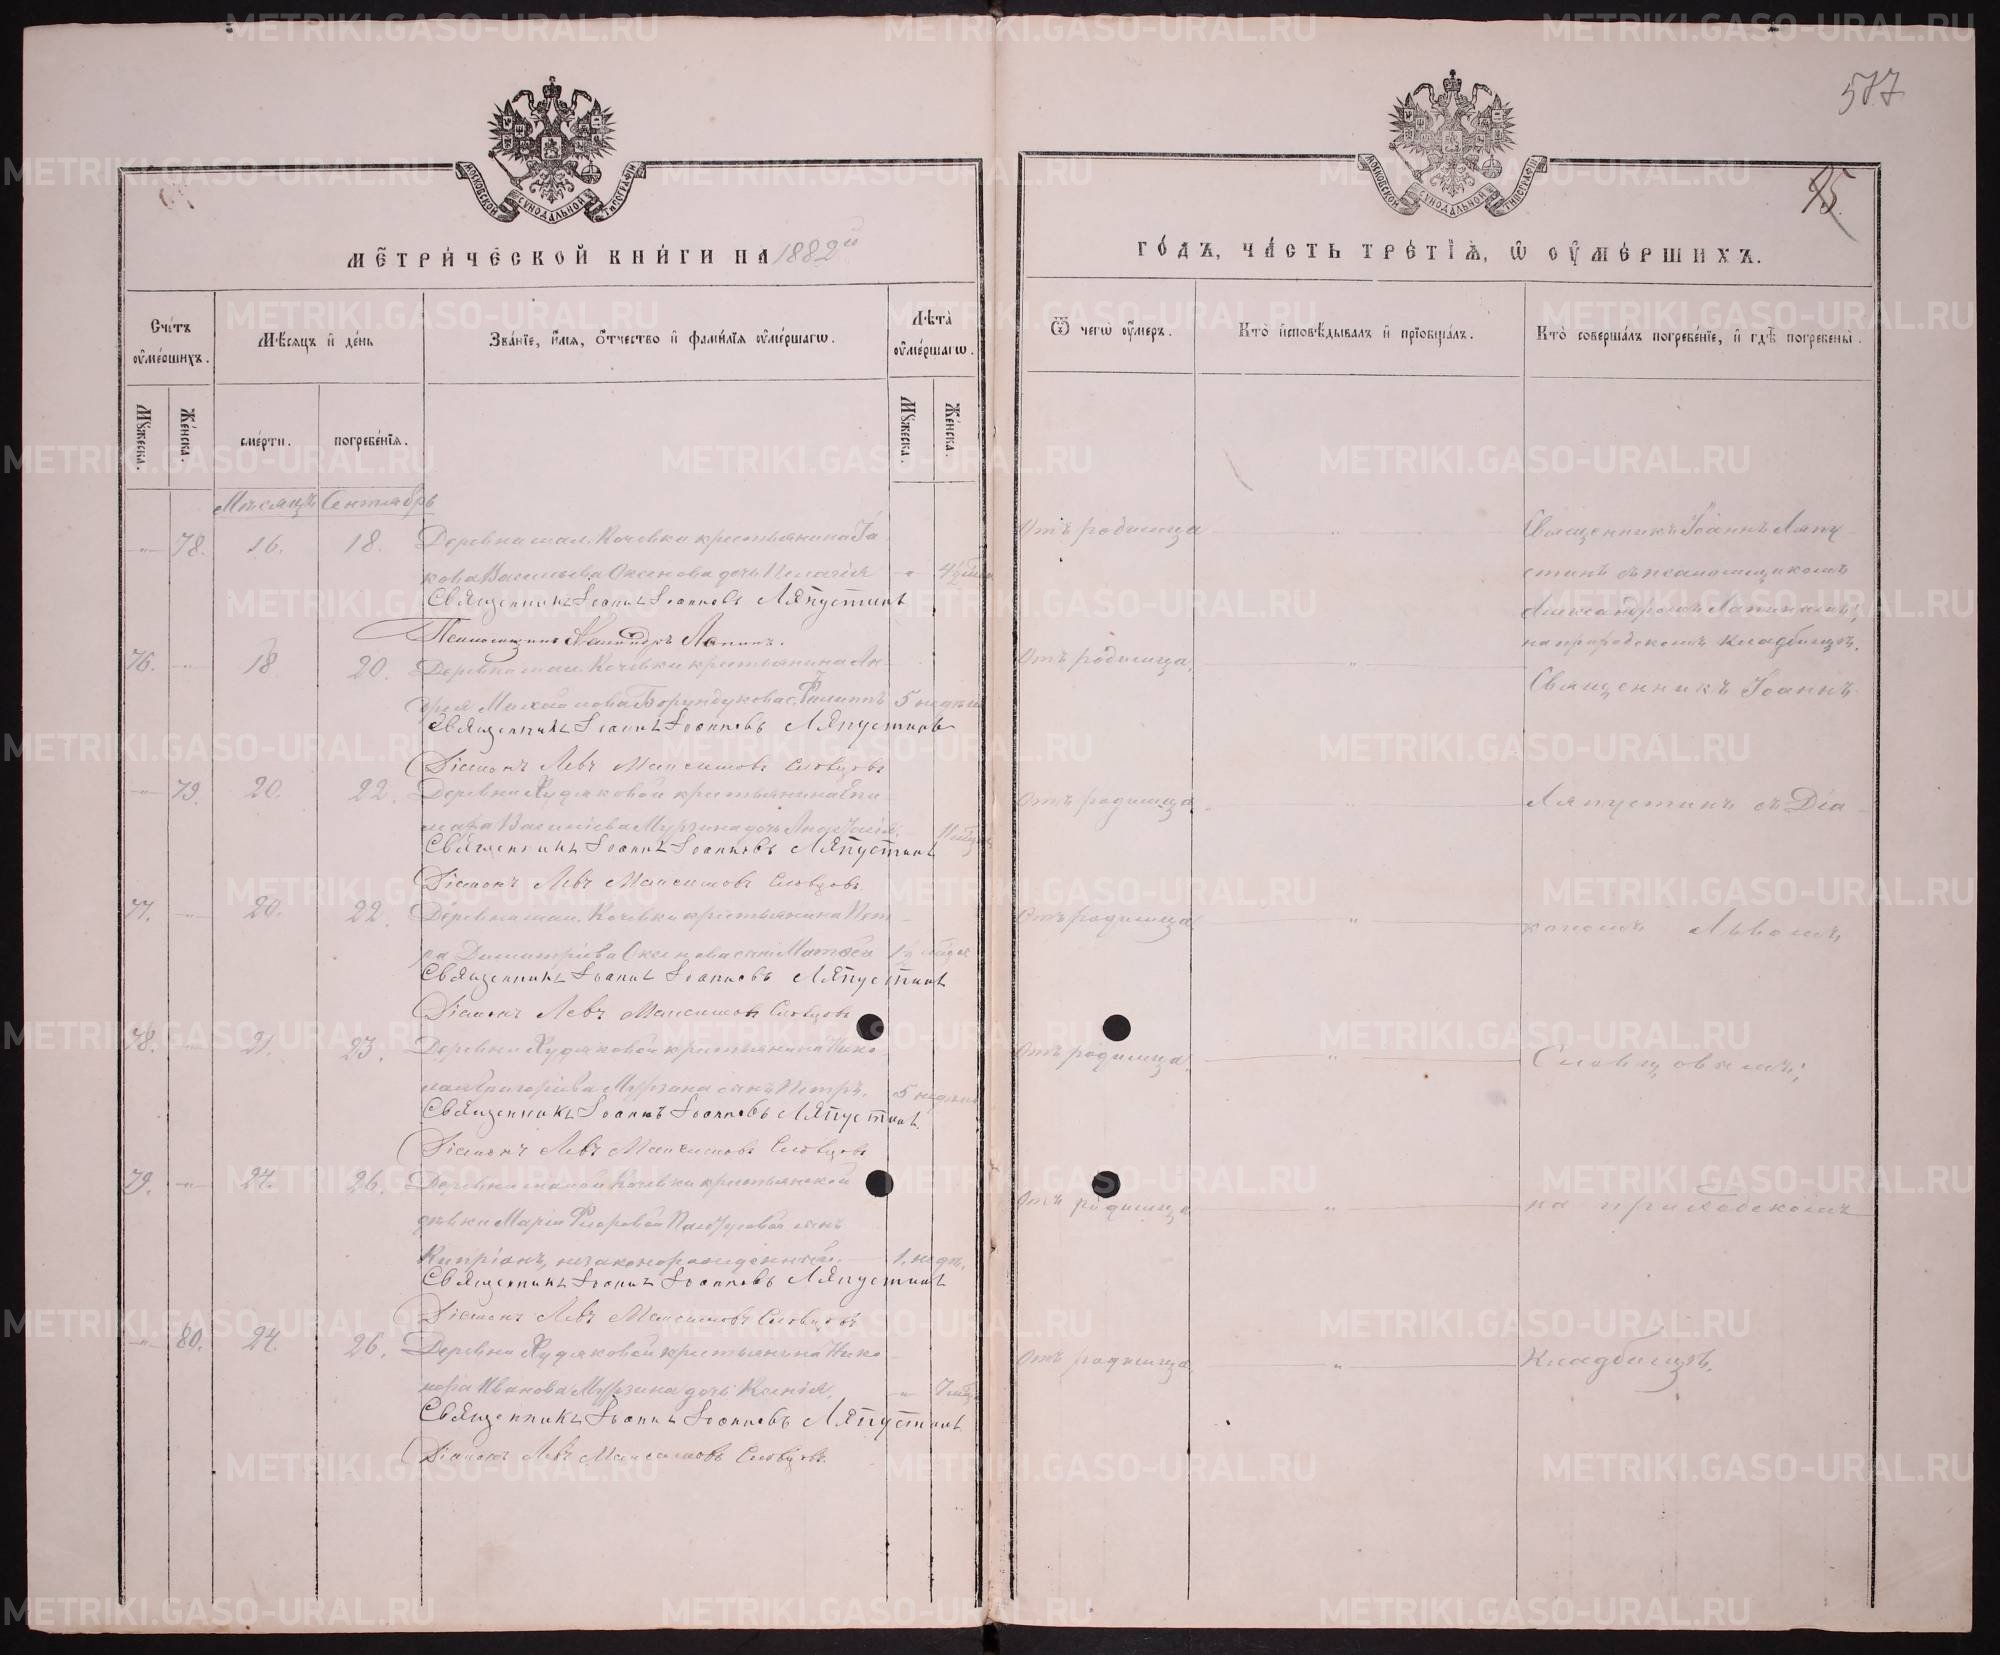 METRIKI.GASO-URAL.RU
577
45.
МОСКОВСКОЙ СѴНОДАЛЬНОЙ ТИПОГРАФІИ
МЕТРИЧЕСКОЙ КНИГИ НА 1882й
ГОДЪ, ЧАСТЬ ТРЕТІЯ, Ѿ ОУМЕРШИХЪ.
Счетъ оумершихъ.
Мѣсяцъ и день
Званіе, имя, отчество и фамилія оумершагѡ.
Лѣта оумершагѡ.
Ѿ чегѡ оумеръ.
Кто исповѣдывалъ и пріобщалъ.
Кто совершалъ погребеніе, и гдѣ погребены.
Мужеска.
Женска.
смерти.
погребенія.
Мужеска.
Женска.
Мѣсяцъ Сентябрь
78. 16. 18. Деревни мал. Кочевки крестьянина Іа-
кова Васильева Оксенова дочь Пелагія
Священникъ Іоаннъ Іоанновъ Ляпустинъ
Псаломщикъ Александръ Лапинъ.
Отъ родимца
Священникъ Іоаннъ Ляпу
стинъ съ псаломщикомъ
Александромъ Лапинымъ;
на приходскомъ кладбищѣ.
76. 18 20. Деревни мал. Кочевки крестьянина Ан-
дрея Михайлова Борундукова с. Филиппъ 5 недѣль
Священникъ Іоаннъ Іоанновъ Ляпустинъ
Діаконъ Левъ Максимовъ Словцовъ
Отъ родимца,
Священникъ Іоаннъ
79. 20. 22. Деревни Худяковой крестьянина
Васильева Мурзина дочь
Священникъ Іоаннъ Іоанновъ Ляпустинъ
Діаконъ Левъ Максимовъ Словцовъ
Отъ родимца
Ляпустинъ съ Діа-
77. 20. 22. Деревни мал. Кочевки крестьянина Пет-
ра Димитріева Оксенова сынъ Матѳей
Священникъ Іоаннъ Іоанновъ Ляпустинъ
Діаконъ Левъ Максимовъ Словцовъ
Отъ родимца
кономъ Львомъ
78. 21. 23. Деревни Худяковой крестьянина Нико-
лая Григорьева Мурзина сынъ Петръ. 5 недѣль
Священникъ Іоаннъ Іоанновъ Ляпустинъ
Діаконъ Левъ Максимовъ Словцовъ
Отъ родимца
Словцовымъ;
79. 24. 26. Деревни малой Кочевки крестьянской
дѣвки Маріи Флоровой сынъ
Кипріанъ, незаконорожденный. 1. недѣ.
Священникъ Іоаннъ Іоанновъ Ляпустинъ
Діаконъ Левъ Максимовъ Словцовъ
Отъ родимца
на приходскомъ
80. 24. 26. Деревни Худяковой крестьянина Ника-
нора Иванова Мурзина дочь Ксенія. 7
Священникъ Іоаннъ Іоанновъ Ляпустинъ
Діаконъ Левъ Максимовъ Словцовъ.
Отъ родимца
Кладбищѣ.